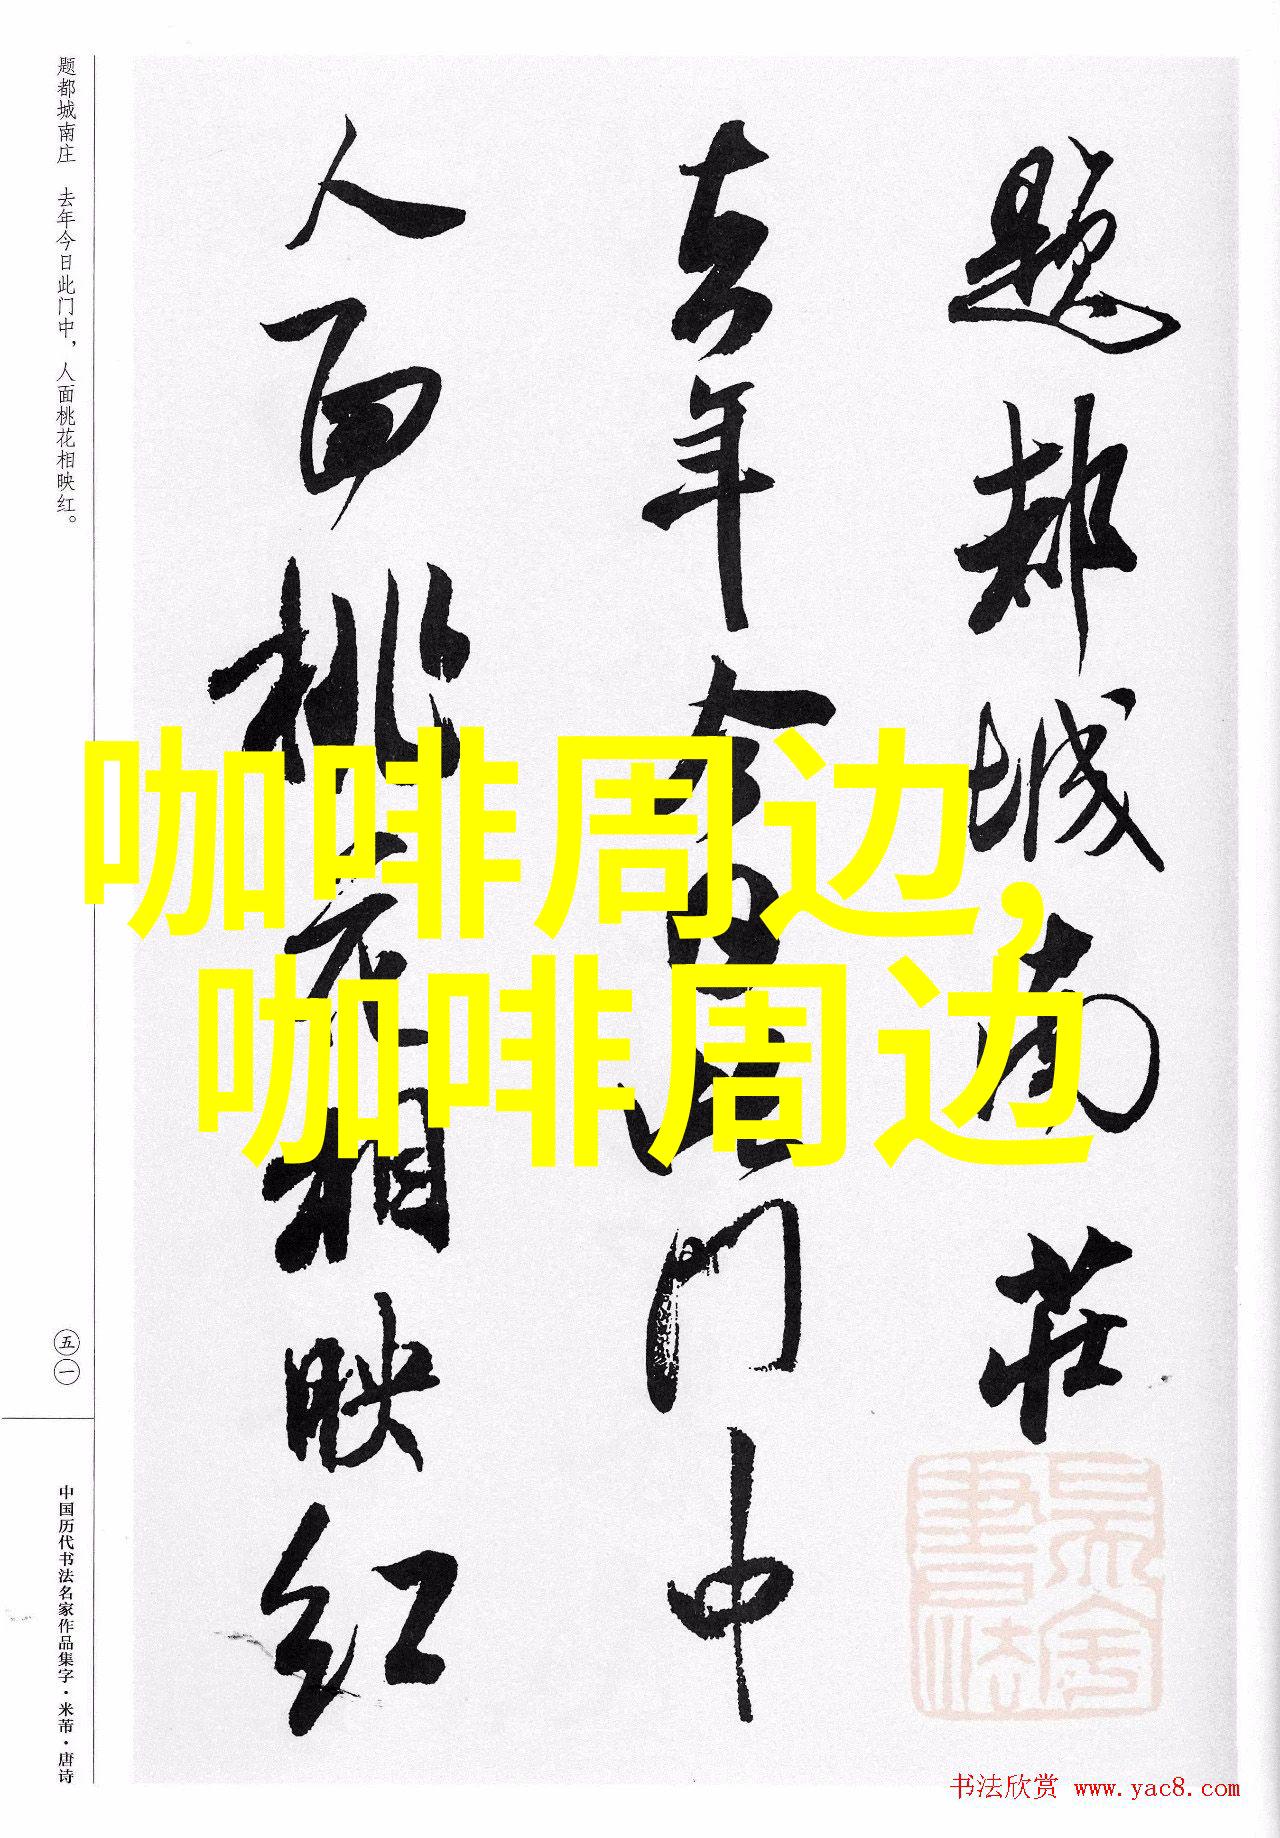 题都城南莊
去年今日此门中
人面桃花相映红
题都城南庄 去年今日此门中，人面桃花相映红。
五一
中国历代书法名家作品集字·米芾·唐诗
咖啡周边，
咖啡周边
书法欣赏 www.yac8.com